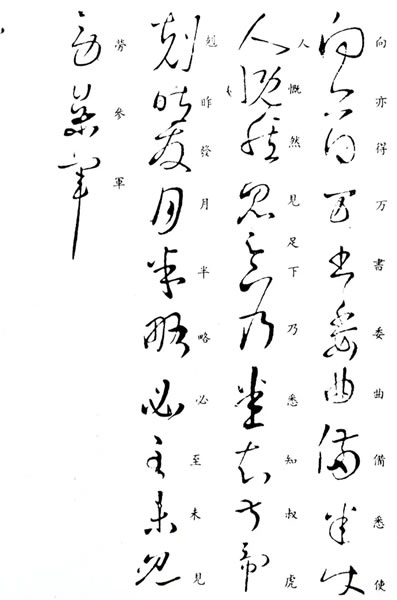 向亦得万書委曲備悉使
人慨然見足下乃悉知叔虎
尅昨發月半略必至未見
勞參軍